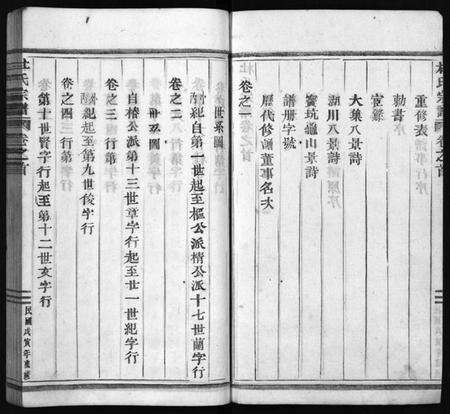 杜氏宗譜 卷之首
重修表
勅書
宦蹟
大業八景詩
湖川八景詩
竇坑龜山景詩
譜册字號
歷代修譜董事名次
卷之一
世系圖
自第一世起至樞公派楕公派十七世蘭字行
卷之二
世系圖
自楕公派第十三世章字行起至廿一世紀字行
卷之三 行第
起至第九世俊字行
卷之四 行第
第十世賢字行起至第十二世亥字行
杜氏宗譜 卷之首
民國戊寅年重修